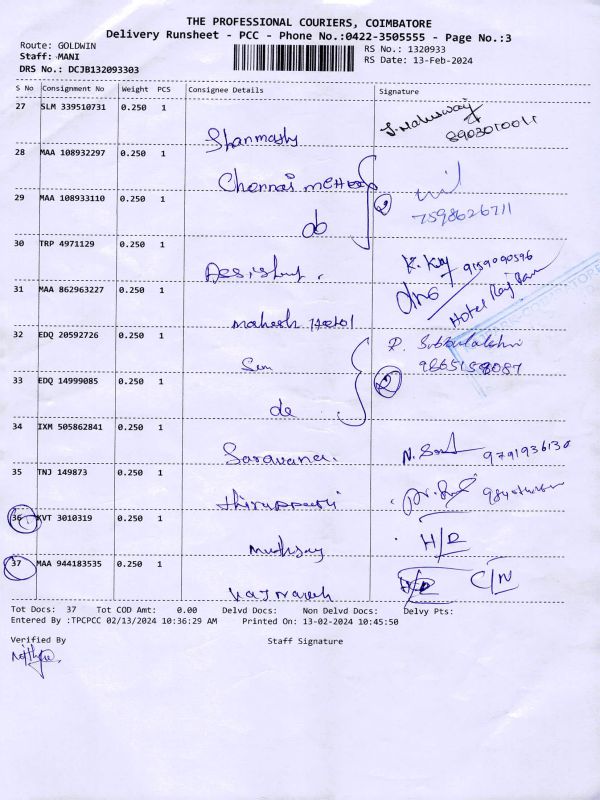 THE PROFESSIONAL COURIERS, COIMBATORE
Delivery Runsheet - PCC - Phone No.:0422-3505555 - Page No.:3
Route: GOLDWIN
RS No.: 1320933
Staff: MANI
RS Date: 13-Feb-2024
DRS No.: DCJB132093303
S No Consignment No Weight PCS Consignee Details Signature
27 SLM 339510731 0.250 1
8903010011
Shanmashy
28 MAA 108932297 0.250 1
Chennai
29 MAA 108933110 0.250 1
2
7598626711
do
30 TRP 4971129 0.250 1
K. 9159090596
31 MAA 862963227 0.250 1
Hotel Raj
Mahesh
32 EDQ 20592726 0.250 1
R. Subbulakshmi
9865158087
Sem
33 EDQ 14999085 0.250 1
2
do
34 IXM 505862841 0.250 1
Saravana.
N. 9791936130
35 TNJ 149873 0.250 1
thiruppathi
36 KVT 3010319 0.250 1
H/D
37 MAA 944183535 0.250 1
C/N
Tot Docs: 37 Tot COD Amt: 0.00 Delvd Docs: Non Delvd Docs: Delvy Pts:
Entered By :TPCPCC 02/13/2024 10:36:29 AM Printed On: 13-02-2024 10:45:50
Verified By Staff Signature